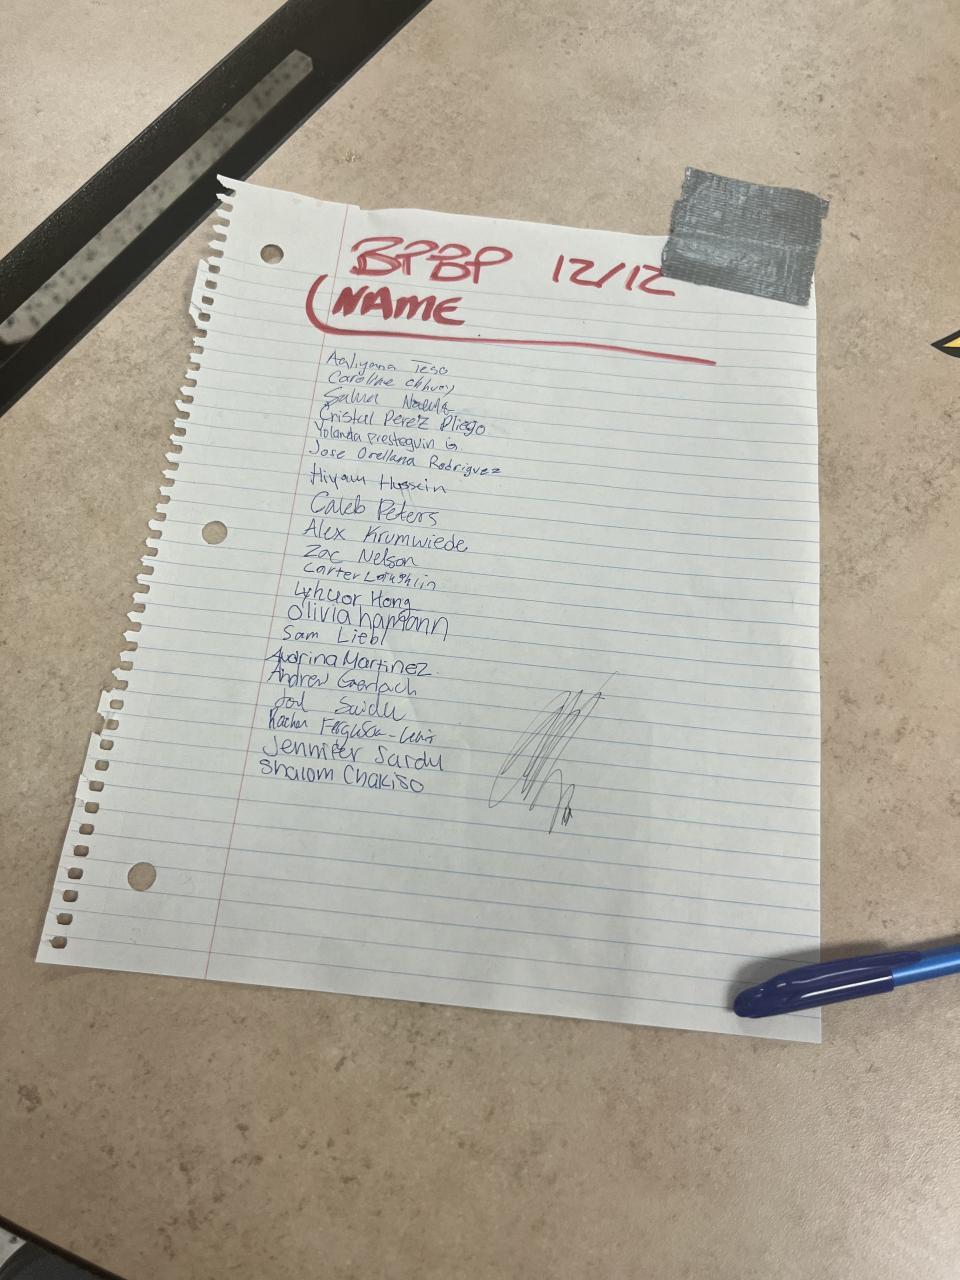 BPBP 12/12
NAME
Aaliyana Teso
Caroline Chhuoy
Salma
Cristal Perez Pliego
Yolanda Presteguin G.
Jose Orellana Rodriguez
Hiyam Hussein
Caleb Peters
Alex Krumwiede
Zac Nelson
Carter Laughlin
Lyhuor Hong
Olivia hamann
Sam Liebl
Audrina Martinez
Andrew Gerlach
Saidu
Ferguson-
Jennifer Sardu
Shalom Chakiso